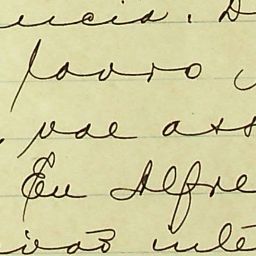 ncia. D
favro
vae ass
Eu Alfre
ivão inte